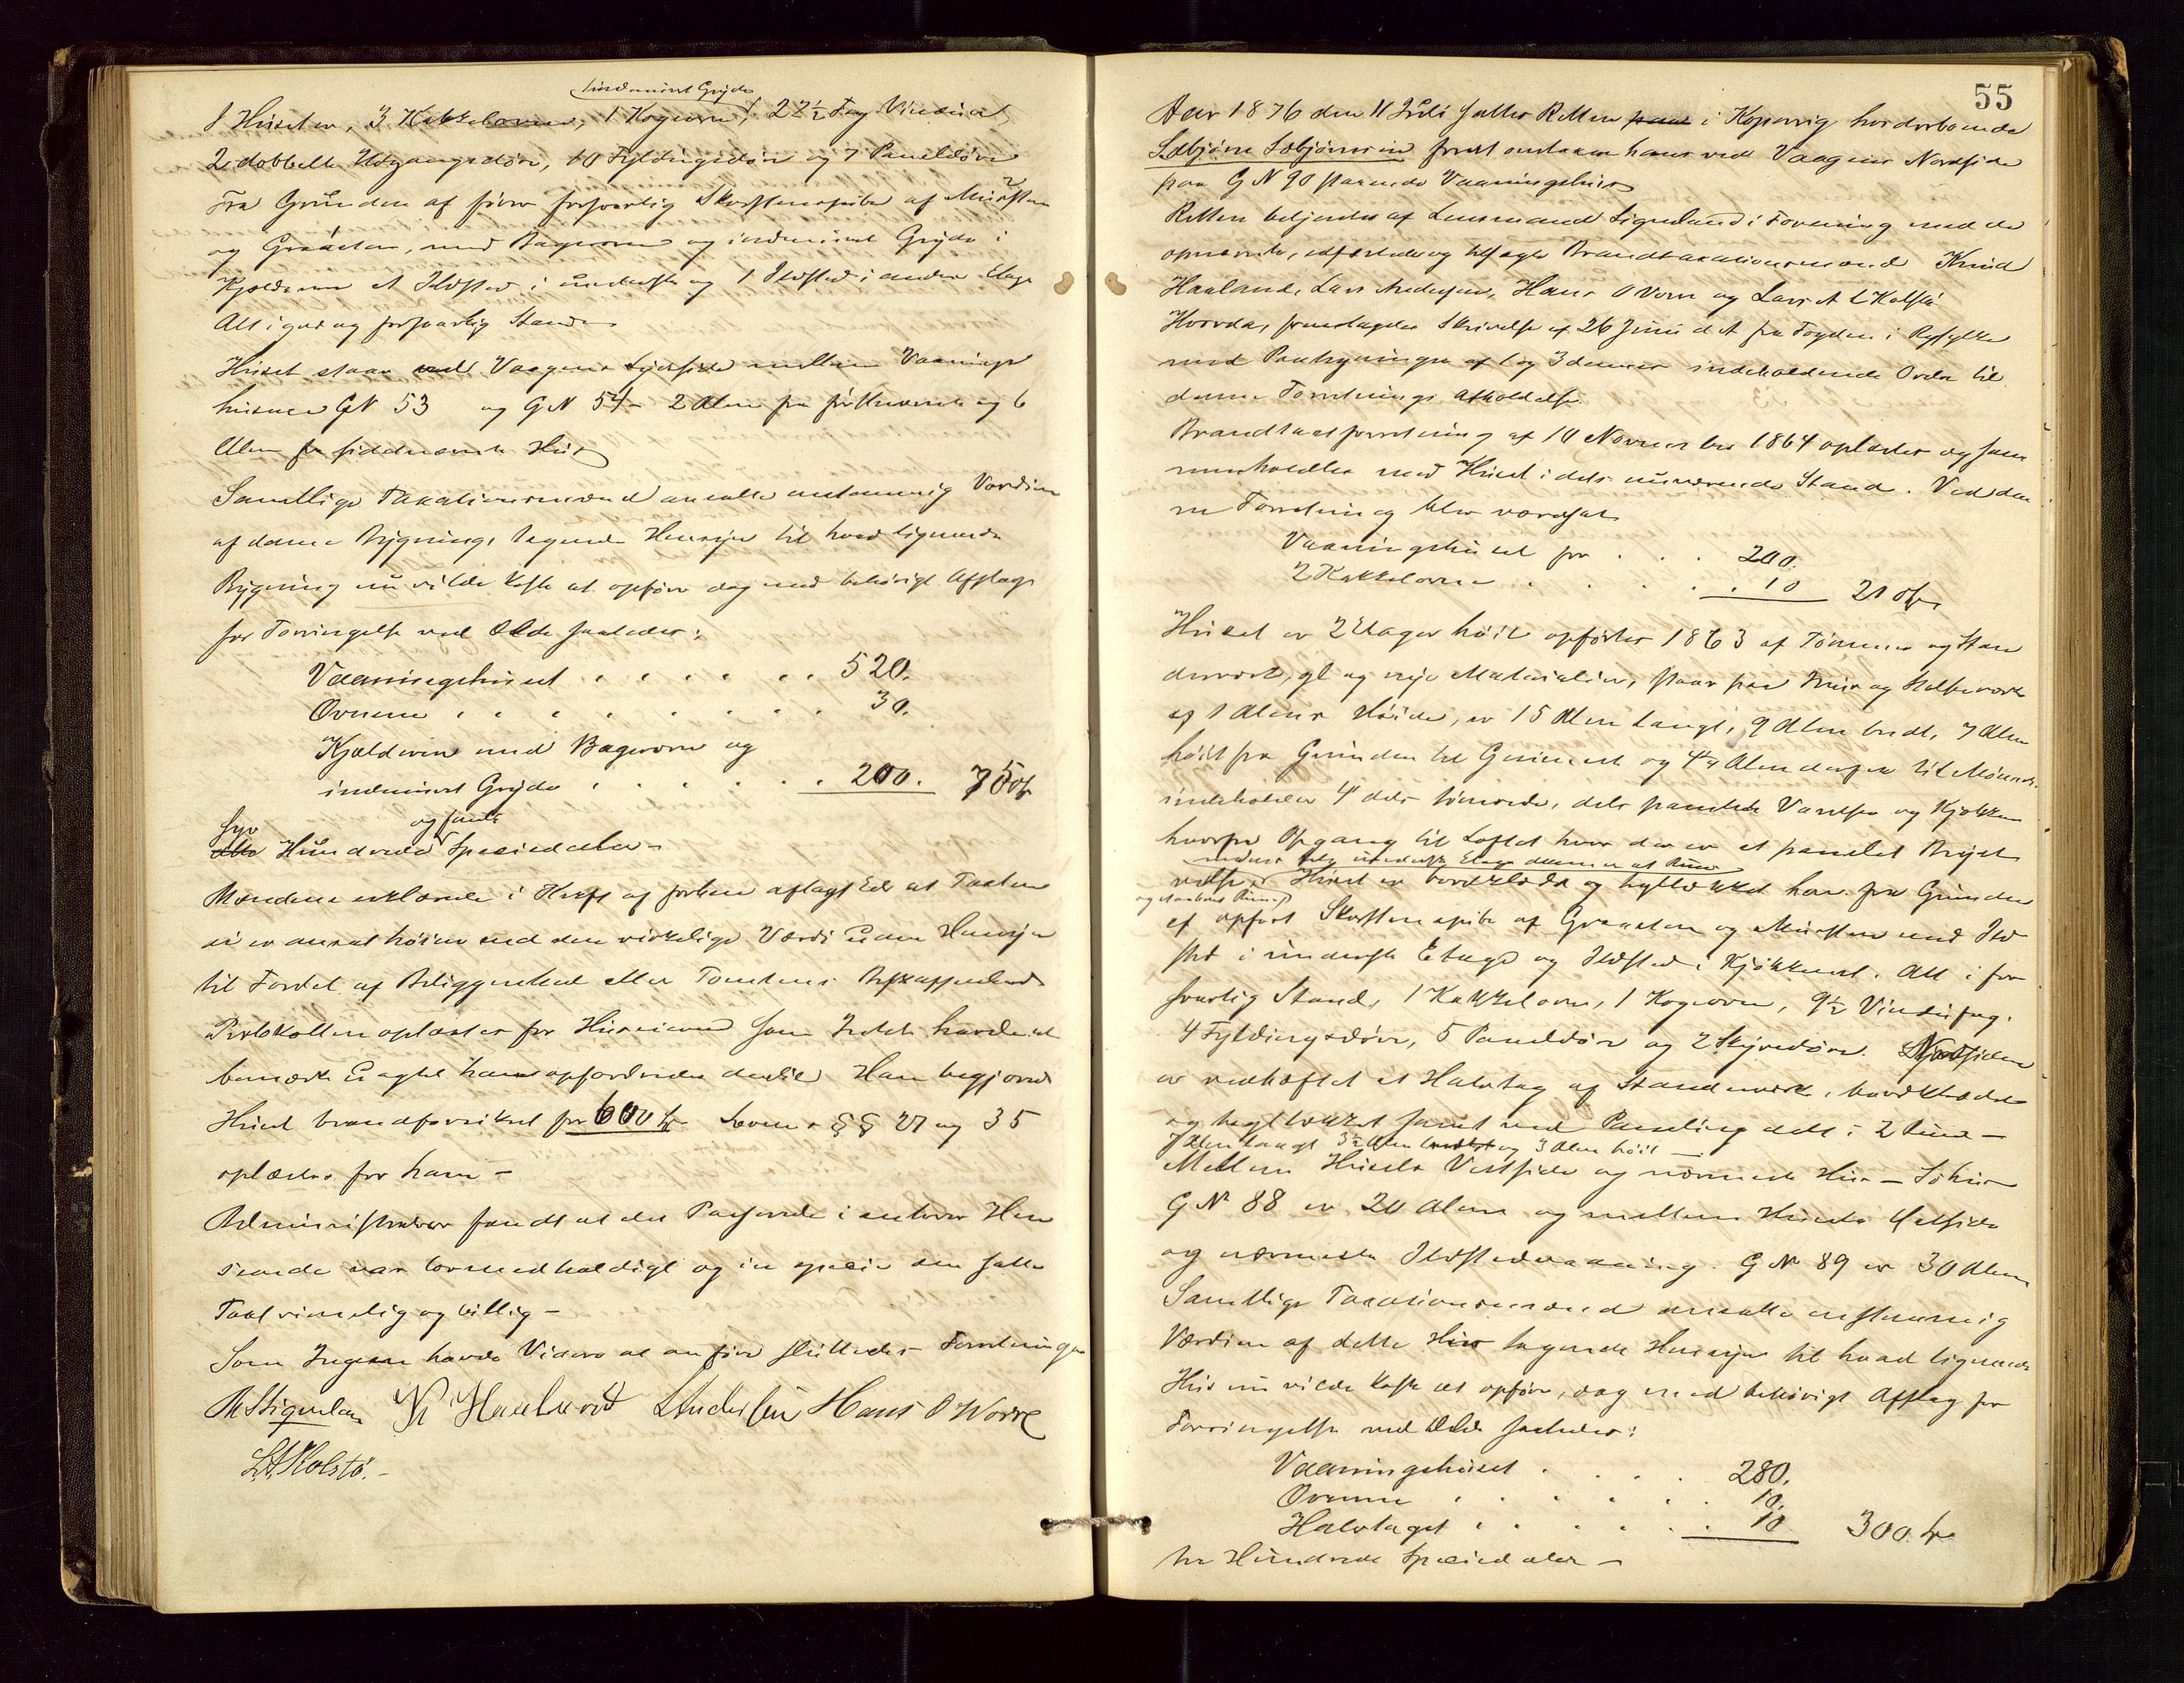 indmuret Gryde
I Huset er, 3 Kakkelovne, 1 Kogeovn, 22½ Fag Vinduer
2 dobbelte Udgangsdøre, 10 Fyldingsdøre og 7 Paneldøre
Fra Grunden afførers forsvarlig Skorstenspibe af Mursten
og Graasten, med Bagerovn og indmuret Gryde i
Kjælderen et Ildsted i underste og 1 Ildsted i anden Etage
Alt i god og forsvarlig Stand
Huset staar ved Vaagens Sydside mellem Vaanings
husene GN 53 og GN 54 - 2 Alen fra førstnævnte og 6
Alen fra sidstnævnte Hus
Samtlige Taxationsmænd ansatte enstemmig Værdien
af denne Bygning, tagende Hensyn til hvad lignende
Bygning nu vilde koste at opføre dog med behørigt Afslag
for Forringelse ved Ælde saaledes:
Vaaningshuset . . . . . . 520.
Ovnene . . . . . . . . 30.
Kjælderen med Bagerovn og
indmuret Gryde . . . . . 200. 750
syv og femti
Hundrede Speciedaler -
Mændene erklærede i Kraft af forhen aflagt Ed at Taxten
ei er ansat høiere end den virkelige Værdi uden Hensyn
til Fordel af Beliggenhed eller Tomtens Beskaffenhed
Protokollen oplæstes for Huseieren som Intet havde at
bemærke uagtet han opfordredes dertil Han begjærede
Huset brandforsikret for 600 Lovens §§ 27 og 35
oplæstes for ham -
Administrator fandt at det Passerede i enhver Hen
seende var lovmedholdigt og in specie den satte
Taxt rimelig og billig -
Som Ingen havde Videre at anføre sluttedes Forretningen
K Haaland L Andersen Hans O Worre
L. A. Kolstø. -
55
Aar 1876 den 11 Juli sattes Retten i Kopervig hos derboende
Sæbjørn Sæbjørnsen forat omtaxere hans ved Vaagens Nordside
paa GN 90 staaende Vaaningshus
Retten betjentes af Lensmand Signeland i Forening med de
opnævnte, edfæstede og tilsagte Brandtaxationsmænd Knud
Haaland, Lars Andersen, Hans O Vorre og Lars A Kolstø
Hvorda, fremlagdes Skrivelse af 26 Juni d A fra Fogden i Ryfylke
med Paategninger af 1 og 3 dennes indeholdende Ordre til
denne Forretnings Afholdelse.
Brandtaxtforretning af 10 November 1864 oplæstes og sam
menholdtes med Huset i dets nuværende Stand. Ved den
ne Forretning blev værdsat
Vaaningshuset for . . . 200.
2 Kakkelovne . . . . . 10 210
Huset er 2 Etager høit opførtes 1863 af Tømmer og Stan
derværk, gl og nye Materialier, staar paa Mur og Stolpeværk
af 1 Alens Høide, er 15 Alen langt, 9 Alen bredt, 7 Alen
høit fra Grunden til Gesimset og 4½ Alen derfra til Mønnet.
indeholder 4 dels tømrede, dels panelede Værelser og Kjøkken
hvorfra Opgang til Loftet hvor der er et panelet Bryst
værelse Huset er bordklædt og tegltækket har fra Grunden
af opført Skorstenspibe af Graasten og Mursten med Ild
sted i underste Etage og Ildsted i Kjøkkenet. Alt i for
svarlig Stand, 1 Kakkelovn, 1 Kogeovn, 9½ Vindufag.
4 Fyldingsdøre, 5 Paneldøre og 2 Skyvedøre.
er vedhæftet et Halvtag af Standerværk, bordklædt
og tegltækket samt ved Paneling delt i 2 Rum -
7 Alen langt 3½ Alen bredt og 3 Alen høit -
Mellem Husets Vestside og nærmeste Hus - Søhus
GN 88 er 20 Alen og mellem Husets Østside
og nærmeste Ildstedsvaaning GN 89 er 30 Alen
Samtlige Taxationsmænd ansatte enstemmig
Værdien af dette Hus tagende Hensyn til hvad lignende
Hus nu vilde koste at opføre, dog med behørigt Afslag for
Forringelse ved Ælde saaledes:
Vaaningshuset . . . . 280.
Ovnene . . . . . . 10.
Halvtaget . . . . . . 10 300
tre Hundrede Speciedaler -